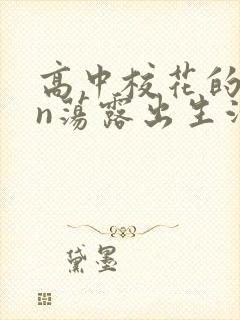 高中校花的
n荡露出生活
黛墨